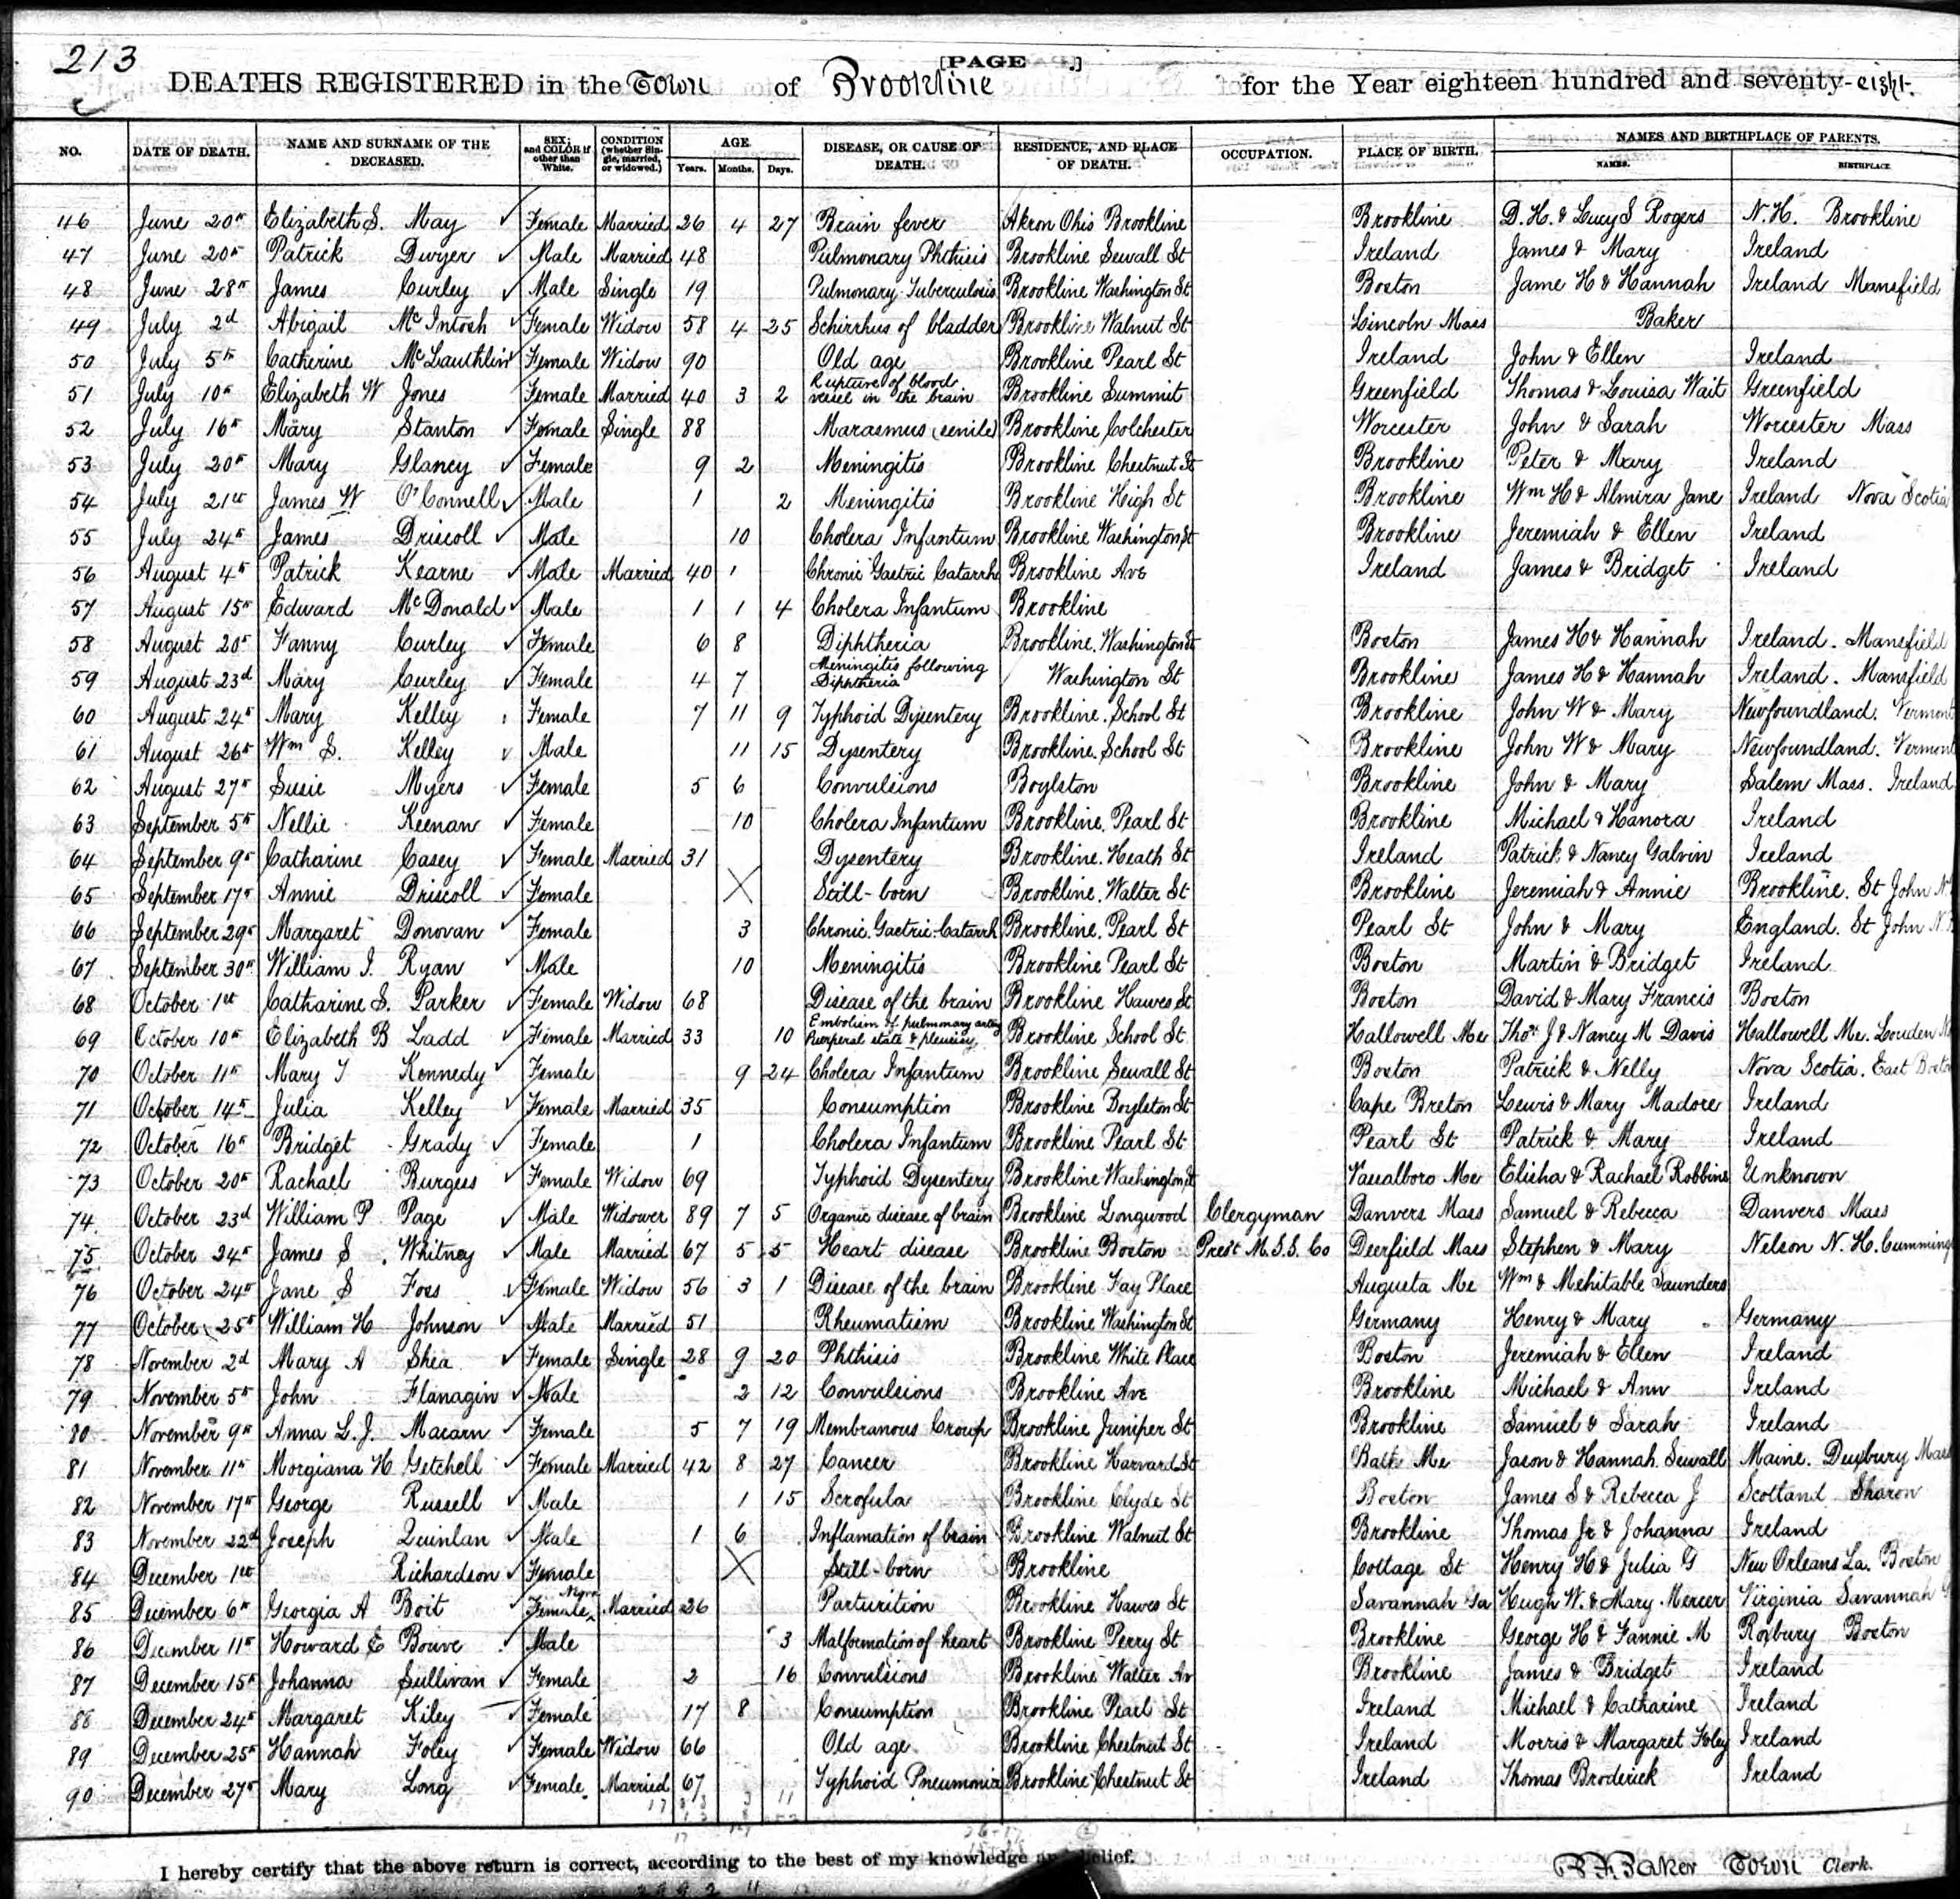 213
[PAGE .]
DEATHS REGISTERED in the Town of Brookline for the Year eighteen hundred and seventy-eight.
NO. DATE OF DEATH. NAME AND SURNAME OF THE DECEASED. SEX; and COLOR if other than White. CONDITION (whether Single, married, or widowed.) AGE Years. Months. Days. DISEASE, OR CAUSE OF DEATH. RESIDENCE, AND PLACE OF DEATH. OCCUPATION. PLACE OF BIRTH. NAMES AND BIRTHPLACE OF PARENTS. NAMES. BIRTHPLACE
46 June 20th Elizabeth S. May Female Married 26 4 27 Brain fever Akron Ohio Brookline Brookline D. H. & Lucy S Rogers N. H. Brookline
47 June 20th Patrick Dwyer Male Married 48 Pulmonary Phthisis Brookline Sewall St Ireland James & Mary Ireland
48 June 28th James Curley Male Single 19 Pulmonary Tuberculosis Brookline Washington St Boston Jame H & Hannah Ireland Mansfield
49 July 2d Abigail McIntosh Female Widow 58 4 25 Schirrhus of bladder Brookline Walnut St Lincoln Mass Baker
50 July 5th Catherine McLauthlin Female Widow 90 Old age Brookline Pearl St Ireland John & Ellen Ireland
51 July 10th Elizabeth W Jones Female Married 40 3 2 Rupture of blood vessel in the brain Brookline Summit Greenfield Thomas & Louisa Wait Greenfield
52 July 16th Mary Stanton Female Single 88 Marasmus (senile) Brookline Colchester Worcester John & Sarah Worcester Mass
53 July 20th Mary Glancy Female 9 2 Meningitis Brookline Chestnut St Brookline Peter & Mary Ireland
54 July 21st James W O'Connell Male 1 2 Meningitis Brookline High St Brookline Wm H & Almira Jane Ireland Nova Scotia
55 July 24th James Driscoll Male 10 Cholera Infantum Brookline Washington St Brookline Jeremiah & Ellen Ireland
56 August 4th Patrick Kearne Male Married 40 1 Chronic Gastric Catarrh Brookline Ave Ireland James & Bridget Ireland
57 August 15th Edward McDonald Male 1 1 4 Cholera Infantum Brookline
58 August 20th Fanny Curley Female 6 8 Diphtheria Brookline. Washington St Boston James H & Hannah Ireland. Mansfield
59 August 23d Mary Curley Female 4 7 Meningitis following Diphtheria Washington St Brookline James H & Hannah Ireland. Mansfield
60 August 24th Mary Kelley Female 7 11 9 Typhoid Dysentery Brookline. School St Brookline John W & Mary Newfoundland. Vermont
61 August 26th Wm S. Kelley Male 11 15 Dysentery Brookline. School St Brookline John W & Mary Newfoundland. Vermont
62 August 27th Susie Myers Female 5 6 Convulsions Boylston Brookline John & Mary Salem Mass. Ireland
63 September 5th Nellie Keenan Female 10 Cholera Infantum Brookline. Pearl St Brookline Michael & Hanora Ireland
64 September 9th Catharine Casey Female Married 31 Dysentery Brookline. Heath St Ireland Patrick & Nancy Galvin Ireland
65 September 17th Annie Driscoll Female Still-born Brookline. Walter St Brookline Jeremiah & Annie Brookline. St John
66 September 29th Margaret Donovan Female 3 Chronic. Gastric. Catarrh Brookline. Pearl St Pearl St John & Mary England. St John N.
67 September 30th William J. Ryan Male 10 Meningitis Brookline Pearl St Boston Martin & Bridget Ireland
68 October 1st Catharine S. Parker Female Widow 68 Disease of the brain Brookline Hawes St Boston David & Mary Francis Boston
69 October 10th Elizabeth B Ladd Female Married 33 10 Embolism of pulmonary artery Puerperal state & pleurisy Brookline School St Hallowell Me Thos J & Nancy M Davis Hallowell Me. Louden
70 October 11th Mary T Kennedy Female 9 24 Cholera Infantum Brookline Sewall St Boston Patrick & Nelly Nova Scotia. East Boston
71 October 14th Julia Kelley Female Married 35 Consumption Brookline Boylston St Cape Breton Lewis & Mary Madore Ireland
72 October 16th Bridget Grady Female 1 Cholera Infantum Brookline Pearl St Pearl St Patrick & Mary Ireland
73 October 20th Rachael Burgess Female Widow 69 Typhoid Dysentery Brookline Washington St Vasalboro Me Elisha & Rachael Robbins Unknown
74 October 23d William P Page Male Widower 89 7 5 Organic disease of brain Brookline Longwood Clergyman Danvers Mass Samuel & Rebecca Danvers Mass
75 October 24th James S. Whitney Male Married 67 5 5 Heart disease Brookline Boston Prest M. S. S. Co Deerfield Mass Stephen & Mary Nelson N. H. Cumming
76 October 24th Jane S Foss Female Widow 56 3 1 Disease of the brain Brookline Fay Place Augusta Me Wm & Mehitable Saunders
77 October 25th William H Johnson Male Married 51 Rheumatism Brookline Washington St Germany Henry & Mary Germany
78 November 2d Mary A Shea Female Single 28 9 20 Phthisis Brookline White Place Boston Jeremiah & Ellen Ireland
79 November 5th John Flanagin Male 2 12 Convulsions Brookline Ave Brookline Michael & Ann Ireland
80 November 9th Anna L. J. Macarn Female 5 7 19 Membranous Croup Brookline Juniper St Brookline Samuel & Sarah Ireland
81 November 11th Morgiana H Getchell Female Married 42 8 27 Cancer Brookline Harvard St Bath Me Jason & Hannah Sewall Maine. Duxbury Mass
82 November 17th George Russell Male 1 15 Scrofula Brookline Clyde St Boston James S & Rebecca J Scotland Sharon
83 November 22d Joseph Quinlan Male 1 6 Inflamation of brain Brookline Walnut St Brookline Thomas Jr & Johanna Ireland
84 December 1st Richardson Female Still-born Brookline Cottage St Henry H & Julia G New Orleans La. Boston
85 December 6th Georgia A Boit Female Married 26 Parturition Brookline Hawes St Savannah Ga Hugh W. & Mary Mercer Virginia Savannah
86 December 11th Howard E Bouve Male 3 Malformation of heart Brookline Perry St Brookline George H & Fannie M Roxbury Boston
87 December 15th Johanna Sullivan Female 2 16 Convulsions Brookline Walter Av Brookline James & Bridget Ireland
88 December 24th Margaret Kiley Female 17 8 Consumption Brookline Pearl St Ireland Michael & Catharine Ireland
89 December 25th Hannah Foley Female Widow 66 Old age Brookline Chestnut St Ireland Morris & Margaret Foley Ireland
90 December 27th Mary Long Female Married 67 Typhoid Pneumonia Brookline Chestnut St Ireland Thomas Broderick Ireland
I hereby certify that the above return is correct, according to the best of my knowledge and belief.
B. F. Baker Town Clerk.